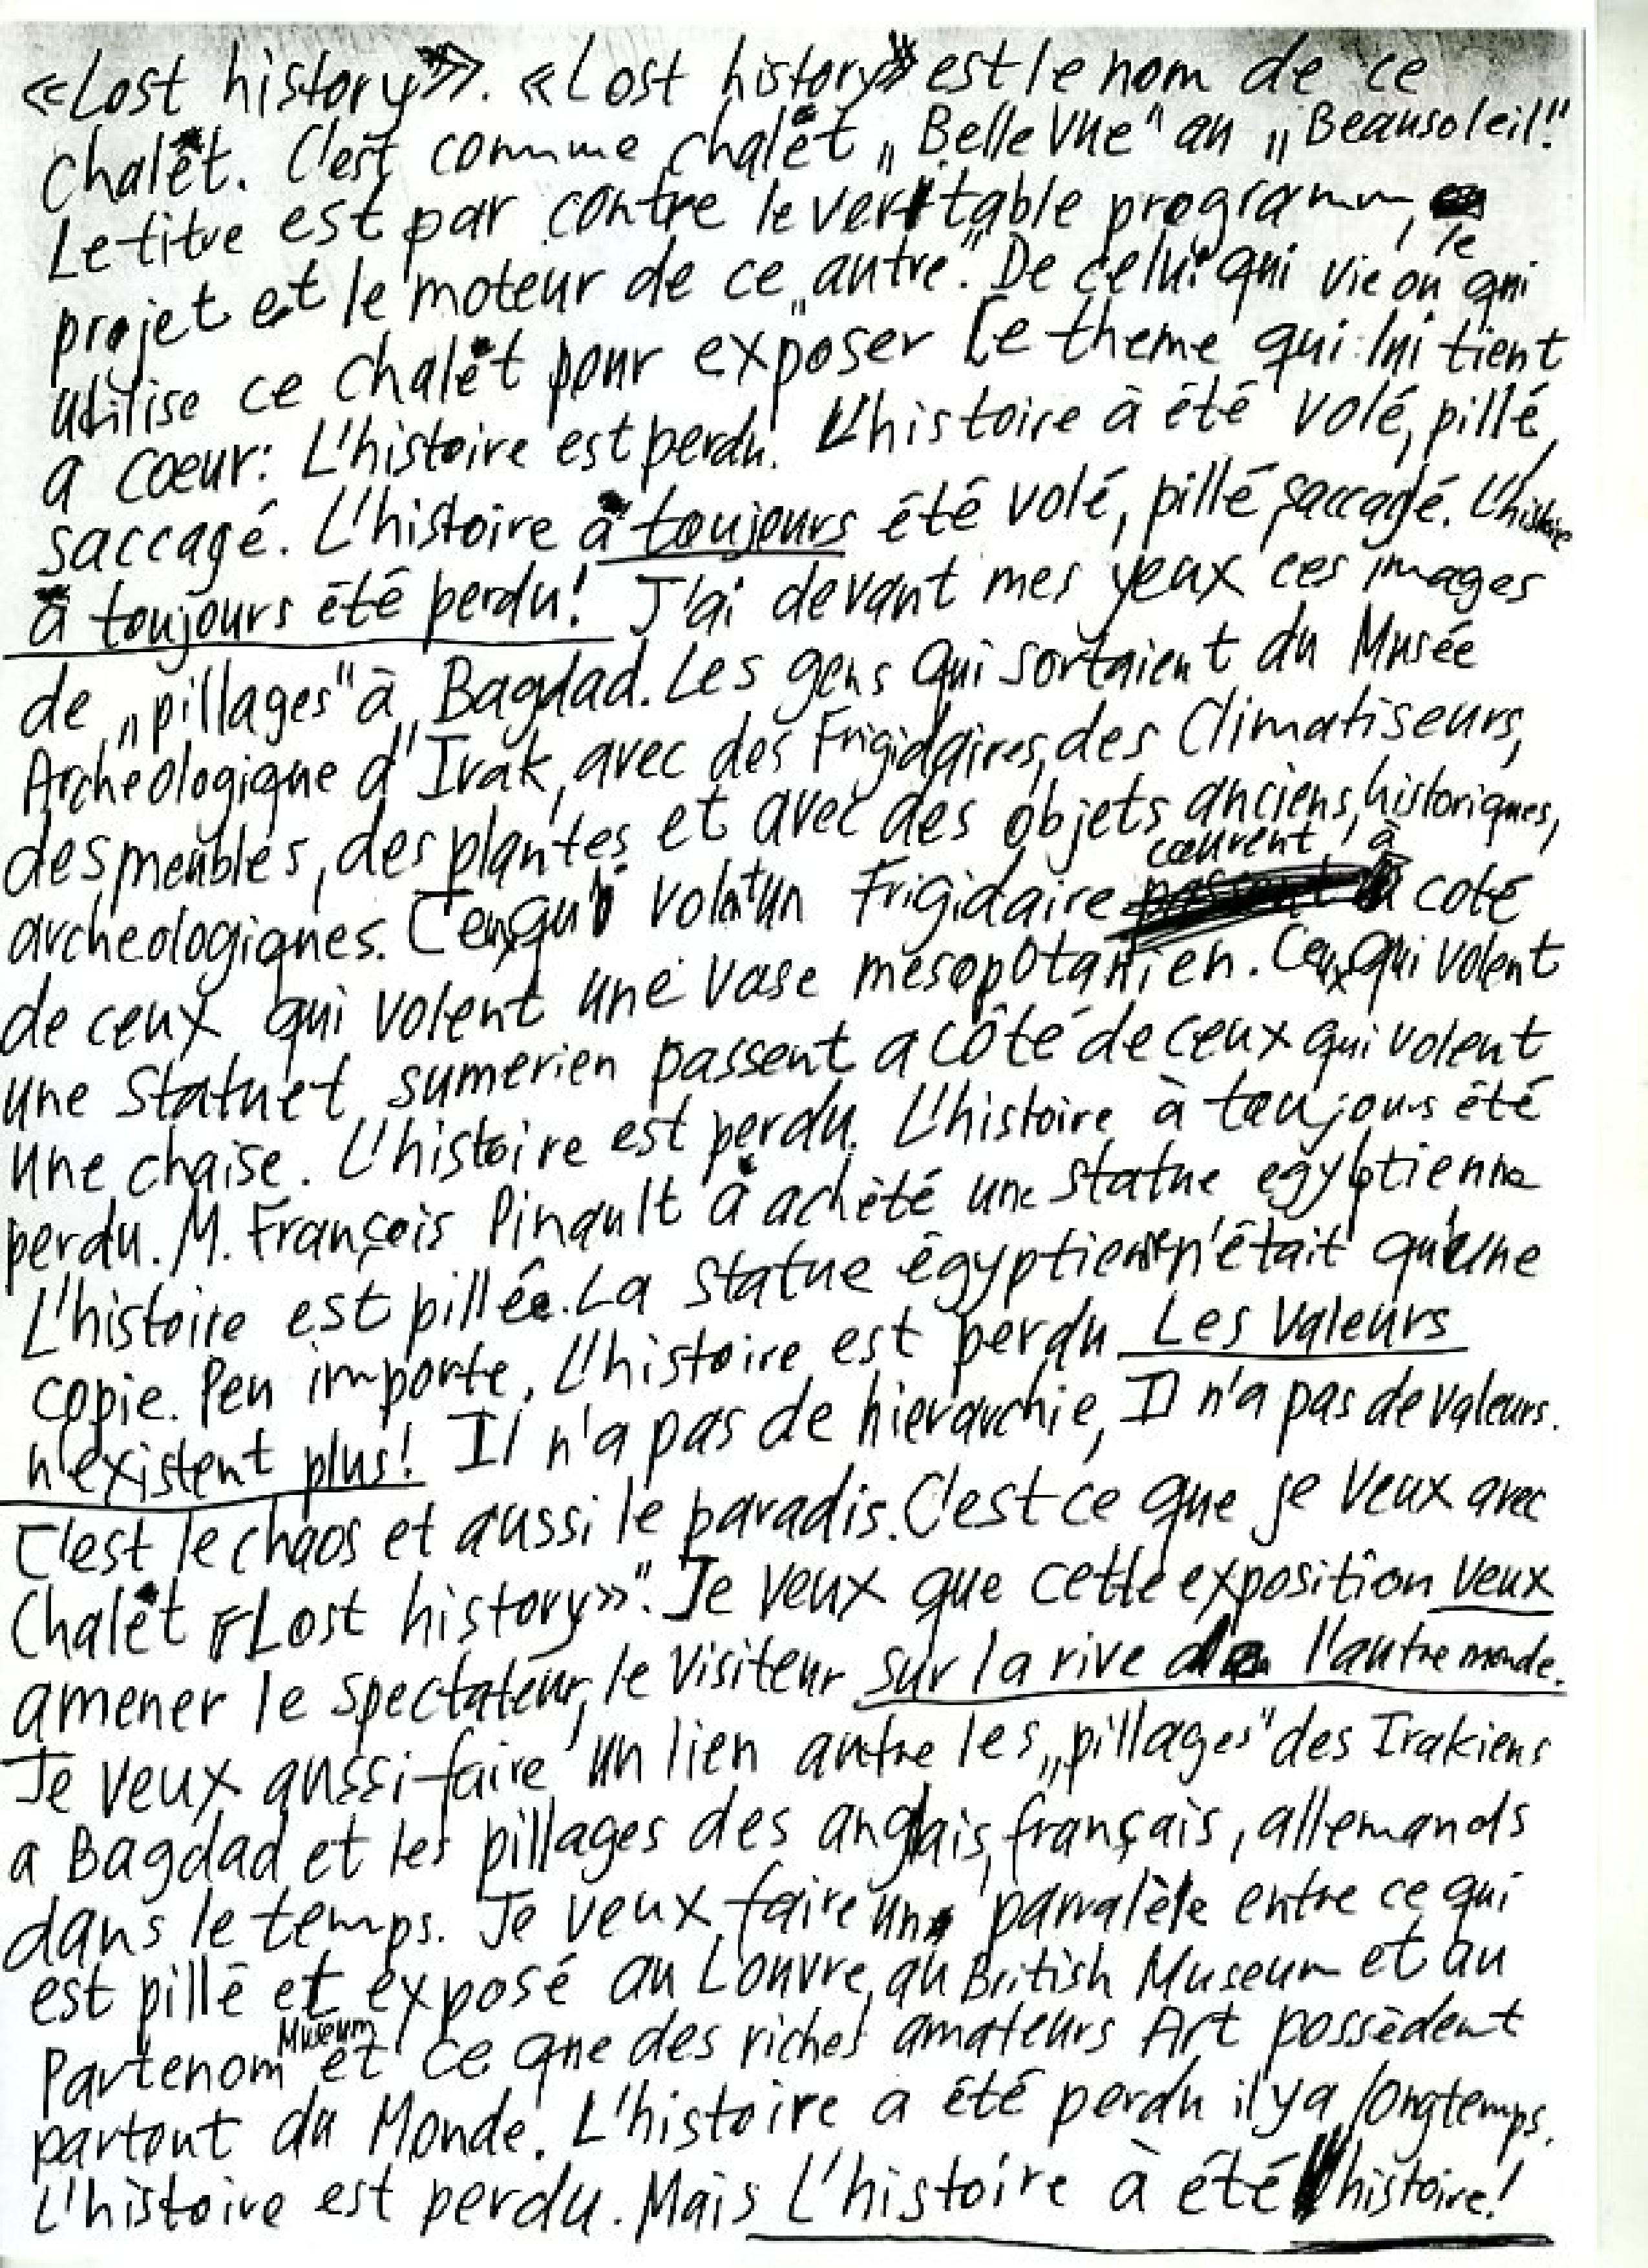 «Lost history». «Lost history» est le nom de ce
chalêt. C'est comme chalêt „Belle Vue" au „Beausoleil".
Le titre est par contre le veritable programm, le
projet et le moteur de ce „autre". De celui qui vie ou qui
utilise ce chalêt pour exposer Le theme qui lui tient
a cœur: L'histoire est perdu. L'histoire à été volé, pillé,
saccagé. L'histoire à toujours été volé, pillé, saccagé. L'histoire
à toujours été perdu! J'ai devant mes yeux ces images
de „pillages" à Bagdad. Les gens qui sortaient du Musée
Archeologique d'Irak, avec des Frigidaires, des Climatiseurs,
des meubles, des plantes et avec des objets anciens, historiques,
archeologiques. Ceux qui volent un Frigidaire cœurent à coté
de ceux qui volent une vase mesopotamien. Ceux qui volent
une Statuet sumerien passent a côté de ceux qui volent
une chaise. L'histoire est perdu. L'histoire à toujours été
perdu. M. François Pinault à achèté une statue egyptienne
L'histoire est pillée. La statue égyptienne n'était qu'une
copie. Peu importe, L'histoire est perdu Les Valeurs
n'existent plus! Il n'a pas de hierarchie, Il n'a pas de valeurs.
C'est le chaos et aussi le paradis. C'est ce que je veux avec
Chalêt «Lost history»". Je veux que cette exposition veux
amener le spectateur, le visiteur sur la rive de l'autre monde.
Je veux aussi faire un lien autre les „pillages" des Irakiens
a Bagdad et les pillages des anglais, français, allemands
dans le temps. Je veux faire un parralèle entre ce qui
est pillé et exposé au Louvre, au British Museum et au
Partenom Museum et ce que des riches amateurs Art possèdent
partout du Monde. L'histoire a été perdu il y a longtemps.
L'histoire est perdu. Mais L'histoire à été histoire!